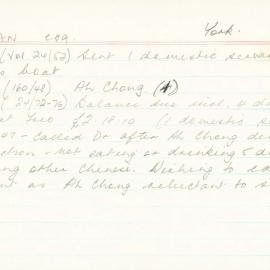 AN ESQ. York.
(Vol 24/52) Sent 1 domestic serva
boat
(160/48) Ah Chong (4)
24/72-76) Balance due incl. 4 d
at Two £2.18.10 (1 domestic s
called Dr after Ah Chong di
ction - not eating or drinking 5 d
ng other Chinese. Wishing to
as Ah Chong reluctant to s